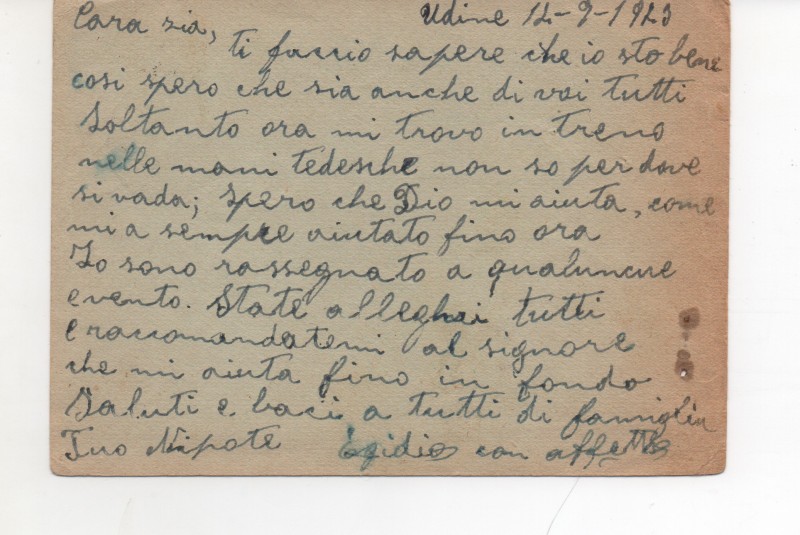 Cara zia, Udine 12-9-1923
ti faccio sapere che io sto bene
cosi spero che sia anche di voi tutti
Soltanto ora mi trovo in treno
nelle mani tedesche non so per dove
si vada; spero che Dio mi aiuta, come
mi a sempre aiutato fino ora
Io sono rassegnato a qualuncue
evento. State alleghri tutti
e raccomandatemi al signore
che mi aiuta fino in fondo
Saluti e baci a tutti di famiglia
Tuo Nipote Egidio con affetto